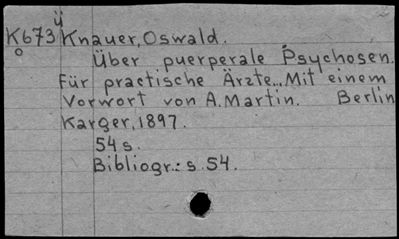 ü
K673 Knauer, Oswald.
o
Über puerperale Psychosen.
Für practische Ärzte... Mit einem
Vorwort von A. Martin. Berlin
Karger, 1897.
54 s.
Bibliogr.: s. 54.